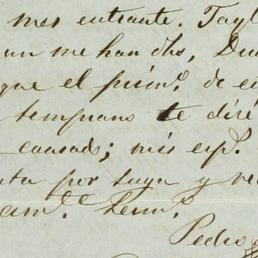 mes entrante. Tayl
un me han dho, Du
que el primº. de e
temprano te diré
causado; mis espº.
ta por suya y re
am.ᵉ Herm.º
Pedro